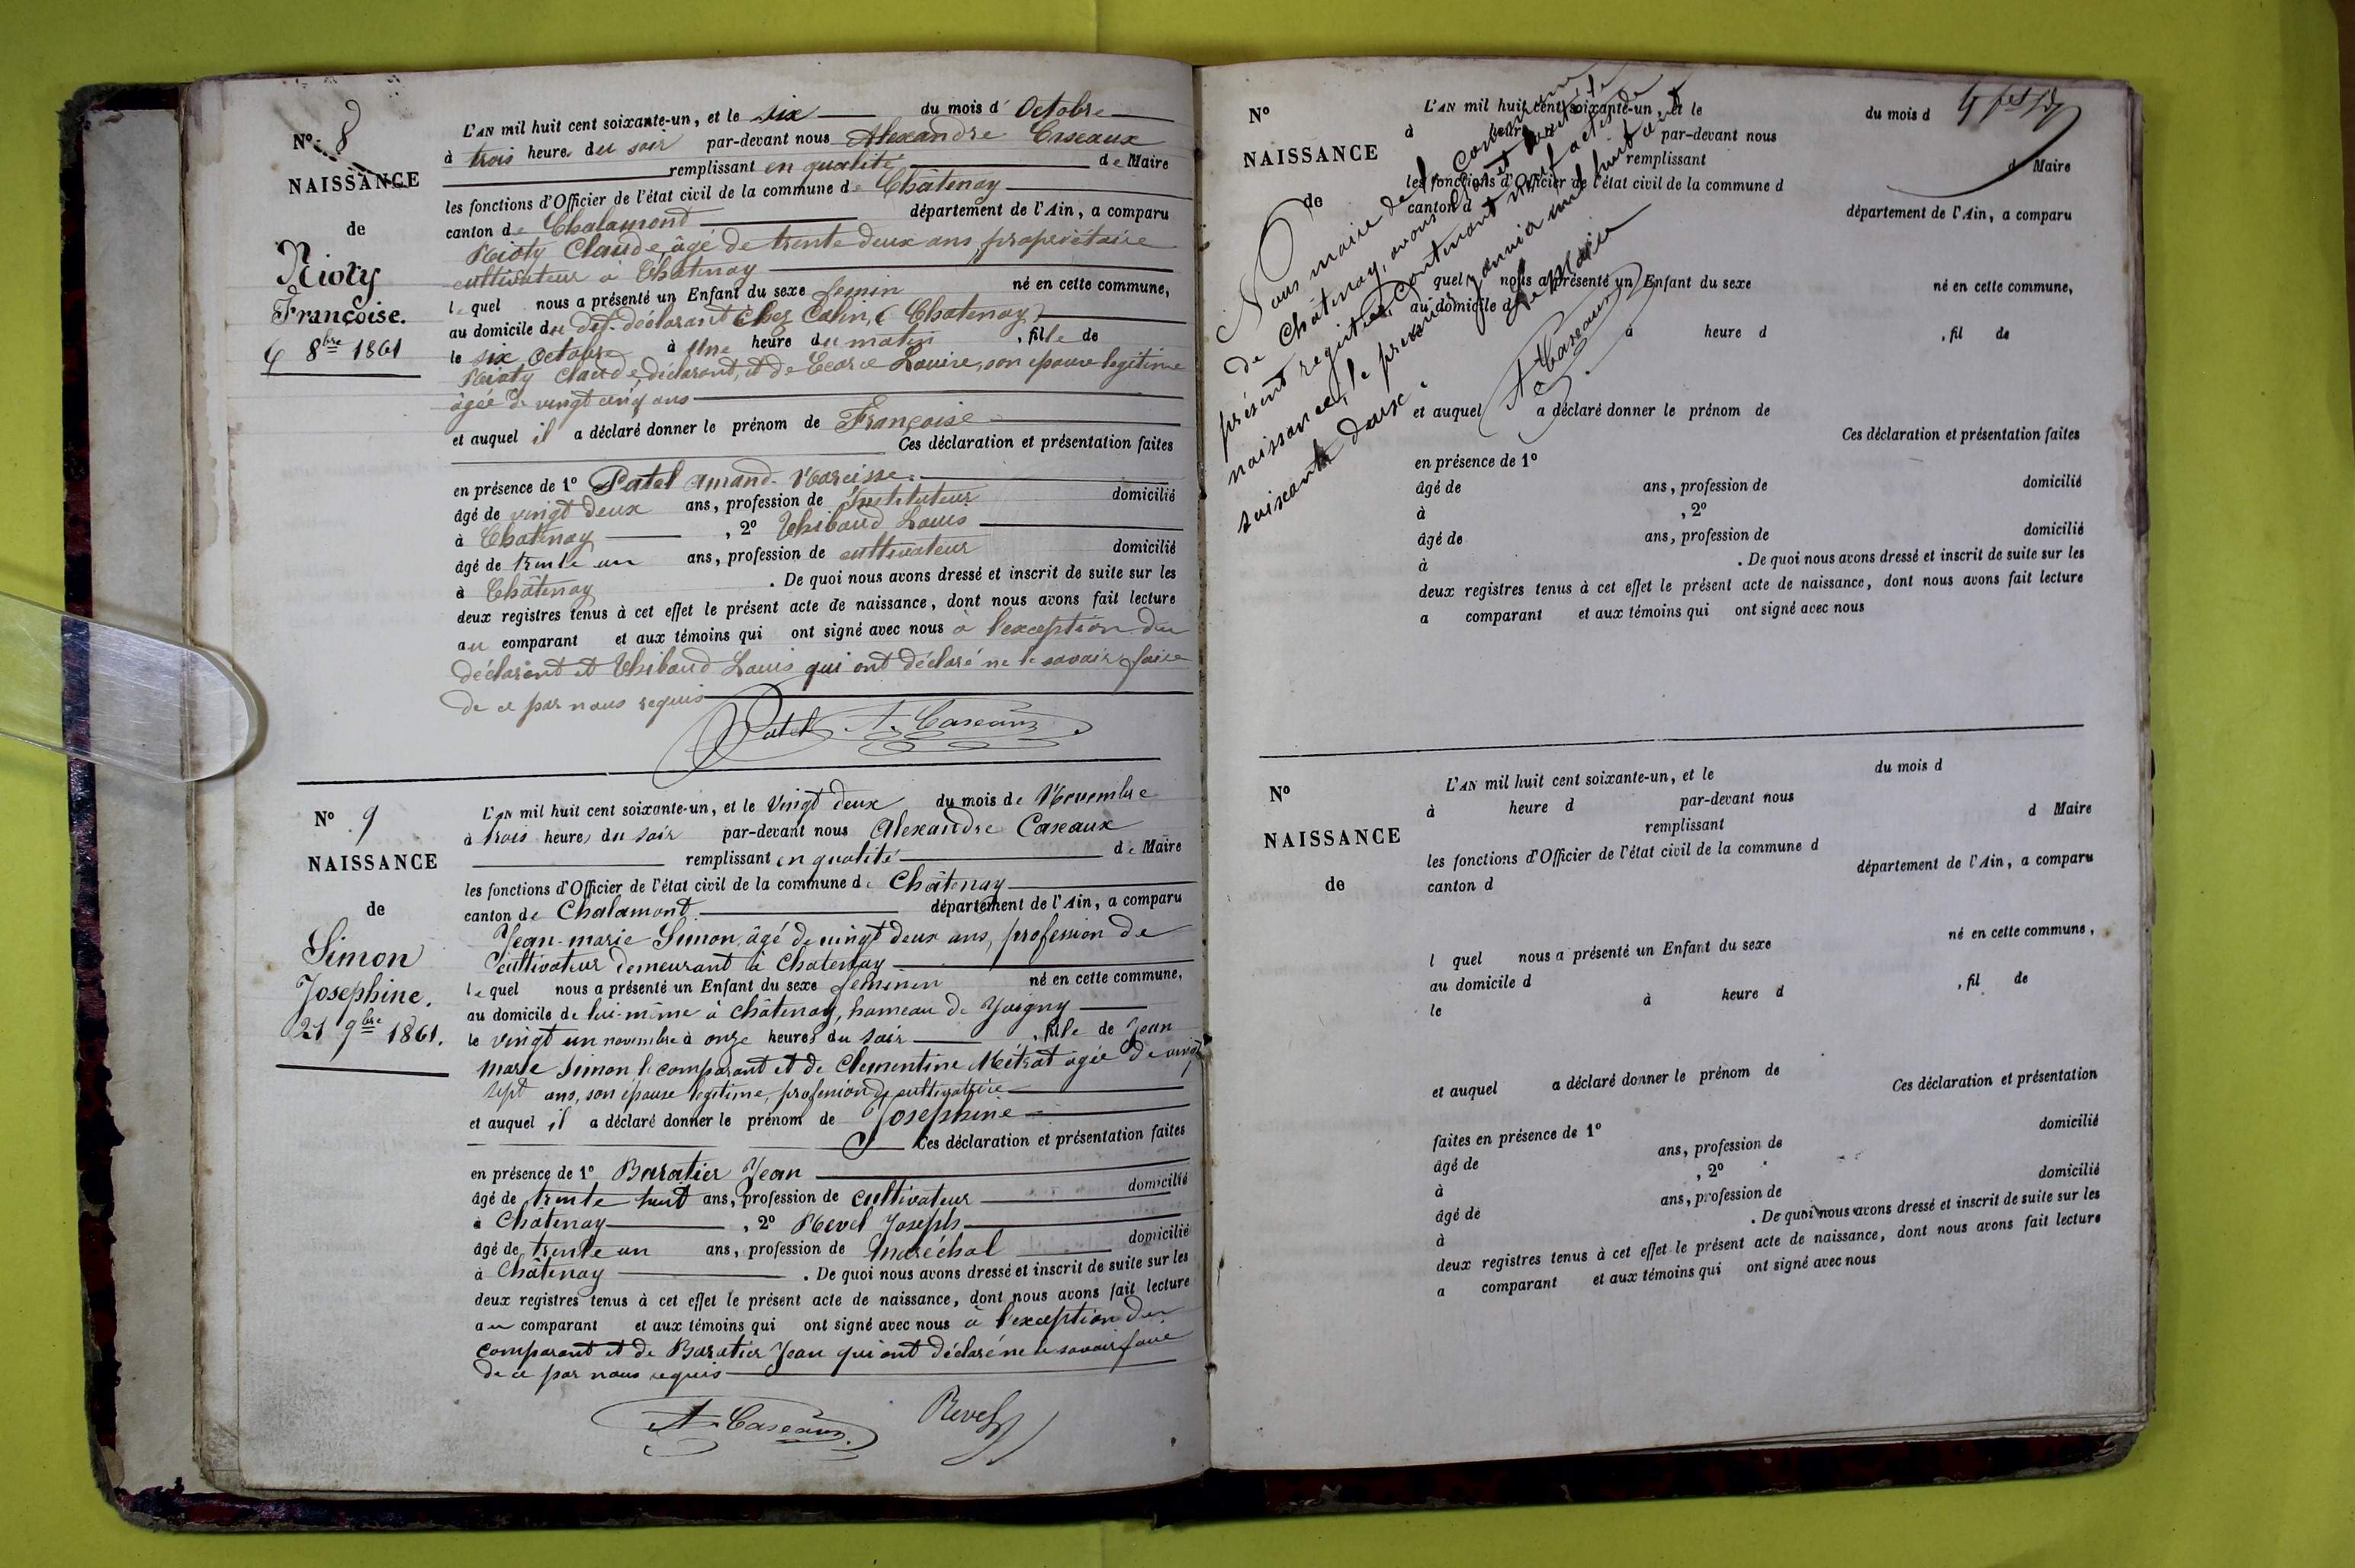 N° 8
NAISSANCE
de
Rioty
Françoise.
6 8bre 1861
L'AN mil huit cent soixante-un, et le six du mois d' Octobre
à trois heures du soir par-devant nous Alexandre Caseaux
remplissant en qualité de Maire
les fonctions d'Officier de l'état civil de la commune de Châtenay
canton de Chalamont département de l'Ain, a comparu
Rioty Claude, âgé de trente deux ans, propriétaire
cultivateur à Châtenay
lequel nous a présenté un Enfant du sexe femin né en cette commune,
au domicile du dit déclarant chez Colin, (Chatenay)
le six Octobre à Une heure du matin, fille de
Rioty Claude, déclarant, et de Louise, son épouse légitime
âgée de vingt cinq ans
et auquel il a déclaré donner le prénom de Françoise
Ces déclaration et présentation faites
en présence de 1° Patel Amand-Narcisse
âgé de vingt deux ans, profession de Instituteur domicilié
à Chatenay, 2° Thibaud Louis
âgé de trente un ans, profession de cultivateur domicilié
à Châtenay. De quoi nous avons dressé et inscrit de suite sur les
deux registres tenus à cet effet le présent acte de naissance, dont nous avons fait lecture
au comparant et aux témoins qui ont signé avec nous à l'exception du
déclarant et Thibaud Louis qui ont déclaré ne le savoir faire
de ce par nous requis
Patel A. Caseaux
N° 9
NAISSANCE
de
Simon
Josephine.
21 9bre 1861.
L'AN mil huit cent soixante-un, et le Vingt deux du mois de Novembre
à trois heures du soir par-devant nous Alexandre Caseaux
remplissant en qualité de Maire
les fonctions d'Officier de l'état civil de la commune de Châtenay
canton de Chalamont département de l'Ain, a comparu
Jean-marie Simon, âgé de vingt deux ans, profession de
cultivateur demeurant à Chatenay
lequel nous a présenté un Enfant du sexe feminin né en cette commune,
au domicile de lui-même à châtenay, hameau de
le vingt un novembre à onze heures du soir, fille de Jean
marie Simon le comparant et de Clementine Métrat âgée de vingt
sept ans, son épouse légitime, profession de cultivatrice
et auquel il a déclaré donner le prénom de Josephine
Ces déclaration et présentation faites
en présence de 1° Baratier Jean
âgé de trente huit ans, profession de cultivateur domicilié
à Châtenay, 2° Revel Joseph
âgé de trente un ans, profession de maréchal domicilié
à Châtenay. De quoi nous avons dressé et inscrit de suite sur les
deux registres tenus à cet effet le présent acte de naissance, dont nous avons fait lecture
au comparant et aux témoins qui ont signé avec nous à l'exception du
comparant et de Baratier Jean qui ont déclaré ne le savoir faire
de ce par nous requis
A. Caseaux Revel
Nous maire de la commune
de Châtenay, avons clos et arrêté le
présent registre contenant neuf actes de
naissance, le premier janvier mil huit cent
soixante douze.
Le Maire
A Caseaux
N°
NAISSANCE
de
L'AN mil huit cent soixante-un, et le du mois d
à heure par-devant nous
remplissant d Maire
les fonctions d'Officier de l'état civil de la commune d
canton d département de l'Ain, a comparu
quel nous a présenté un Enfant du sexe né en cette commune,
au domicile d
à heure d, fil de
et auquel a déclaré donner le prénom de
Ces déclaration et présentation faites
en présence de 1°
âgé de ans, profession de domicilié
à, 2°
âgé de ans, profession de domicilié
à. De quoi nous avons dressé et inscrit de suite sur les
deux registres tenus à cet effet le présent acte de naissance, dont nous avons fait lecture
a comparant et aux témoins qui ont signé avec nous
N°
NAISSANCE
de
L'AN mil huit cent soixante-un, et le du mois d
à heure d par-devant nous
remplissant d Maire
les fonctions d'Officier de l'état civil de la commune d
canton d département de l'Ain, a comparu
l quel nous a présenté un Enfant du sexe né en cette commune,
au domicile d
le à heure d, fil de
et auquel a déclaré donner le prénom de
Ces déclaration et présentation
faites en présence de 1°
âgé de ans, profession de domicilié
à, 2°
âgé de ans, profession de domicilié
à. De quoi nous avons dressé et inscrit de suite sur les
deux registres tenus à cet effet le présent acte de naissance, dont nous avons fait lecture
a comparant et aux témoins qui ont signé avec nous